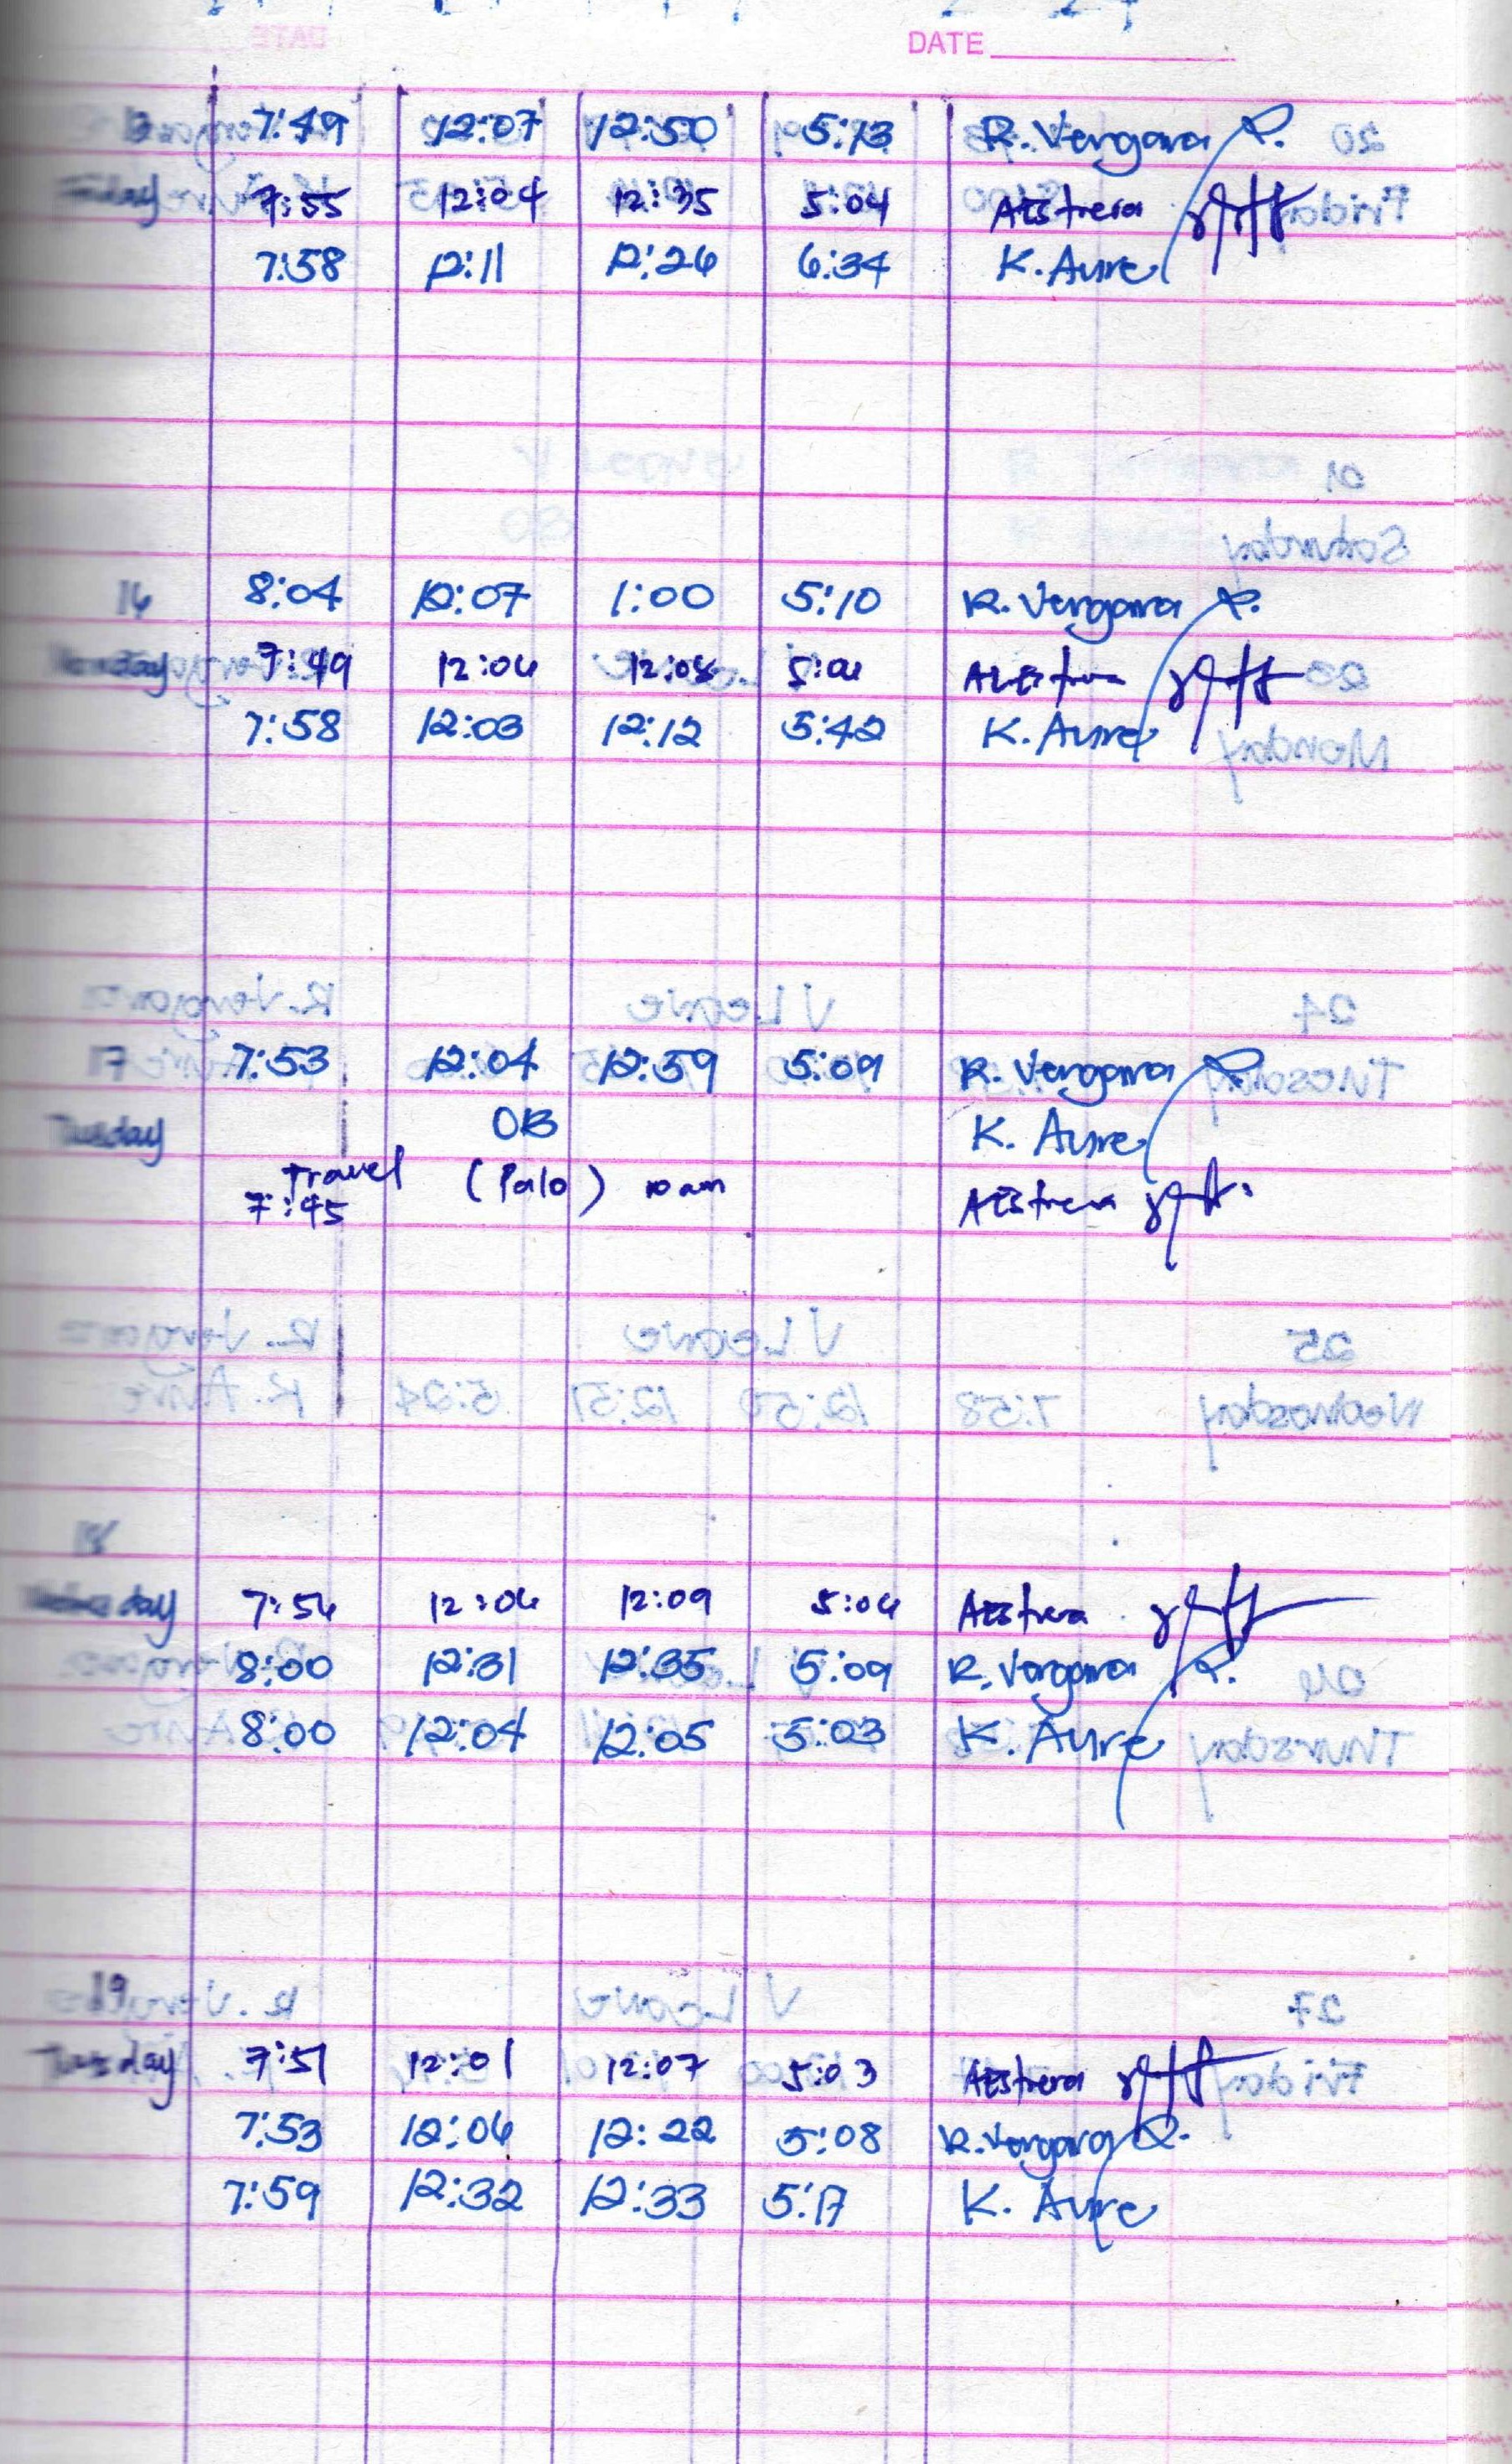 DATE
13 7:49 12:07 12:50 5:13 R. Vergara
Friday 7:55 12:04 12:35 5:04 AEstrera
7:58 12:11 12:26 6:34 K. Aure
16 8:04 12:07 1:00 5:10 R. Vergara
Monday 7:49 12:06 12:08 K. Aure
7:58 12:03 12:12 5:42 K. Aure
17 7:53 12:04 12:59 5:09 R. Vergara
Tuesday OB K. Aure
Travel (Palo) 10 am
7:45 AEstrera
18
day 7:56 12:06 12:09 5:06 AEstrera
8:00 12:31 12:35 5:09 R. Vergara
8:00 12:04 12:05 5:03 K. Aure
19
day 7:51 12:01 12:07 5:03 AEstrera
7:53 12:06 12:22 5:08 R. Vergara
7:59 12:32 12:33 5:17 K. Aure